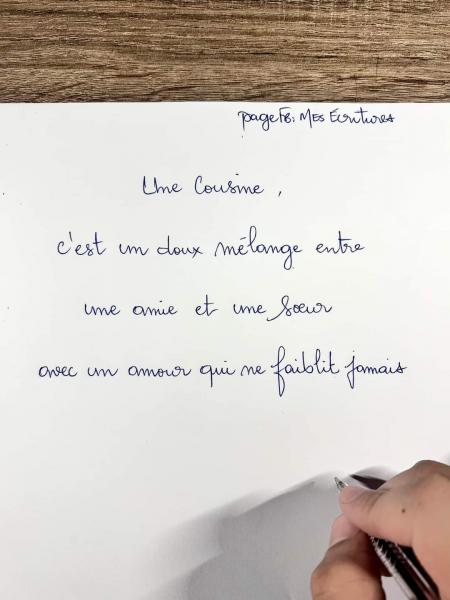 pageFB: MES Écritures
Une Cousine,
c'est un doux mélange entre
une amie et une sœur
avec un amour qui ne faiblit jamais